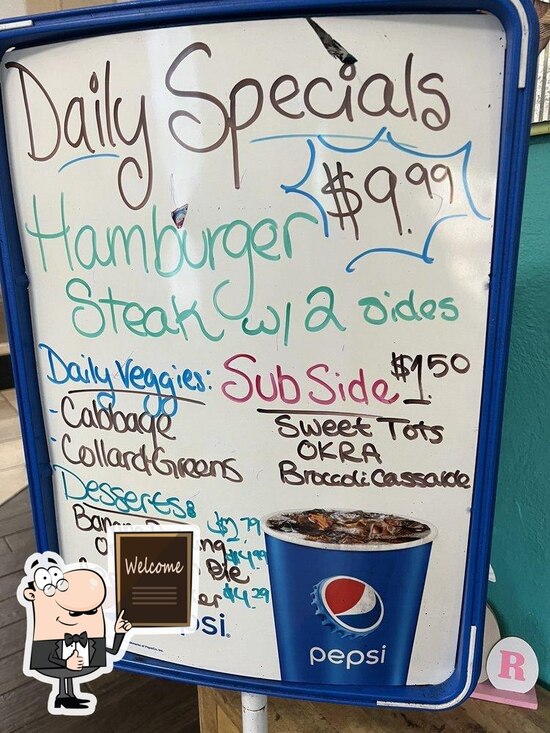 Daily Specials
$9.99
Hamburger
Steak w/ 2 sides
Daily Veggies:
- Cabbage
- Collard Greens
Sub Side $1.50
Sweet Tots
OKRA
Broccoli Cassarole
Desserts:
$2.79
$4.99
Pie
$4.29
Welcome
pepsi
R